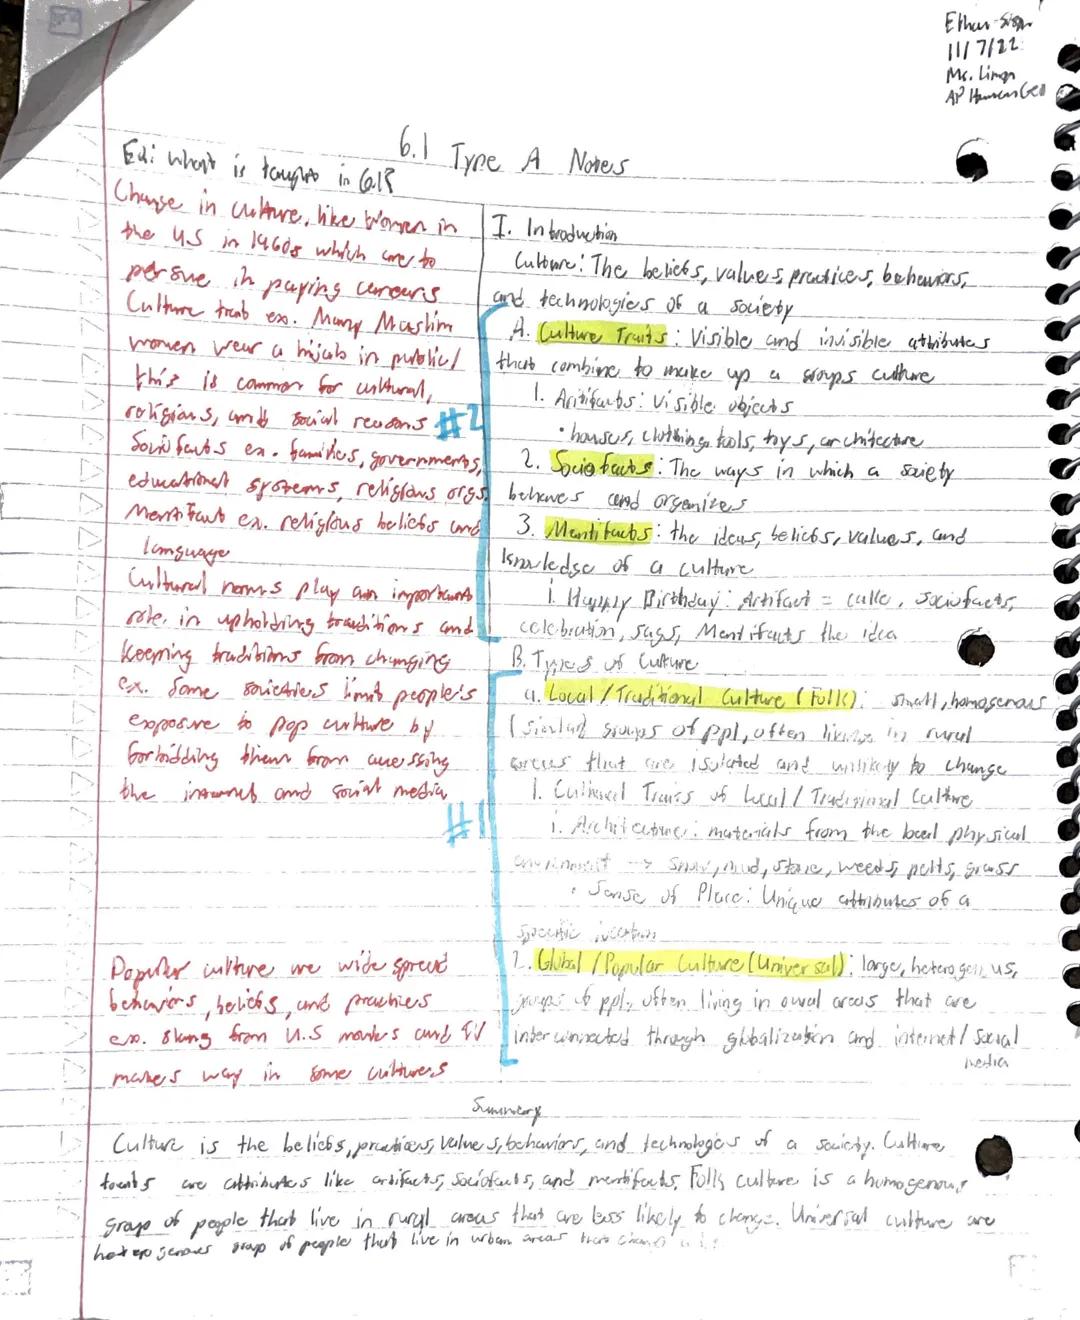 Ethan
11/7/22
Ms. Limon
AP Human Geo
6.1 Type A Notes
EQ: What is taught in 6.1?
Change in culture, like women in
the US in 1960s which are to
persue in paying careers
Culture trait ex. Many Muslim
women wear a hijab in public/
this is common for cultural,
religious, and social reasons #2
Sociofacts ex. families, governments,
educational systems, religious orgs.
Mentifact ex. religious beliefs and
language
Cultural norms play an important
role in upholding traditions and
keeping traditions from changing
ex. Some societies limit people's
exposure to pop culture by
forbidding them from accessing
the internet and social media
#1
Popular culture are wide spread
behaviors, beliefs, and practices
ex. slang from U.S movies and TV
makes way in some cultures
I. Introduction
Culture: The beliefs, values, practices, behaviors,
and technologies of a society
A. Culture Traits: Visible and invisible attributes
that combine to make up a groups culture
1. Aritifacts: Visible objects
• houses, clothing, tools, toys, architecture
2. Sociofacts: The ways in which a society
behaves and organizes
3. Mentifacts: the ideas, beliefs, values, and
knowledge of a culture
i. Happy Birthday: Artifact = cake, sociofacts,
celebration, Mentifacts the idea
B. Types of Culture
a. Local/Traditional Culture (Folk). small, homogenous
(similar) groups of ppl, often living in rural
areas that are isolated and unlikely to change
1. Cultural Traits of Local/Traditional Culture
i. Architecture: materials from the local physical
environment → snow, mud, stone, weeds, pelts, grass
• Sense of Place: Unique attributes of a
specific location
2. Global/Popular Culture (Universal): large, heterogenous,
groups of ppl, often living in areas that are
interconnected through globalization and internet/social
media
Summary
Culture is the beliefs, practices, values, behaviors, and technologies of a society. Culture
traits are attributes like artifacts, sociofacts, and mentifacts. Folk culture is a homogenous
group of people that live in rural areas that are less likely to change. Universal culture are
heterogenous group of people that live in urban areas that change